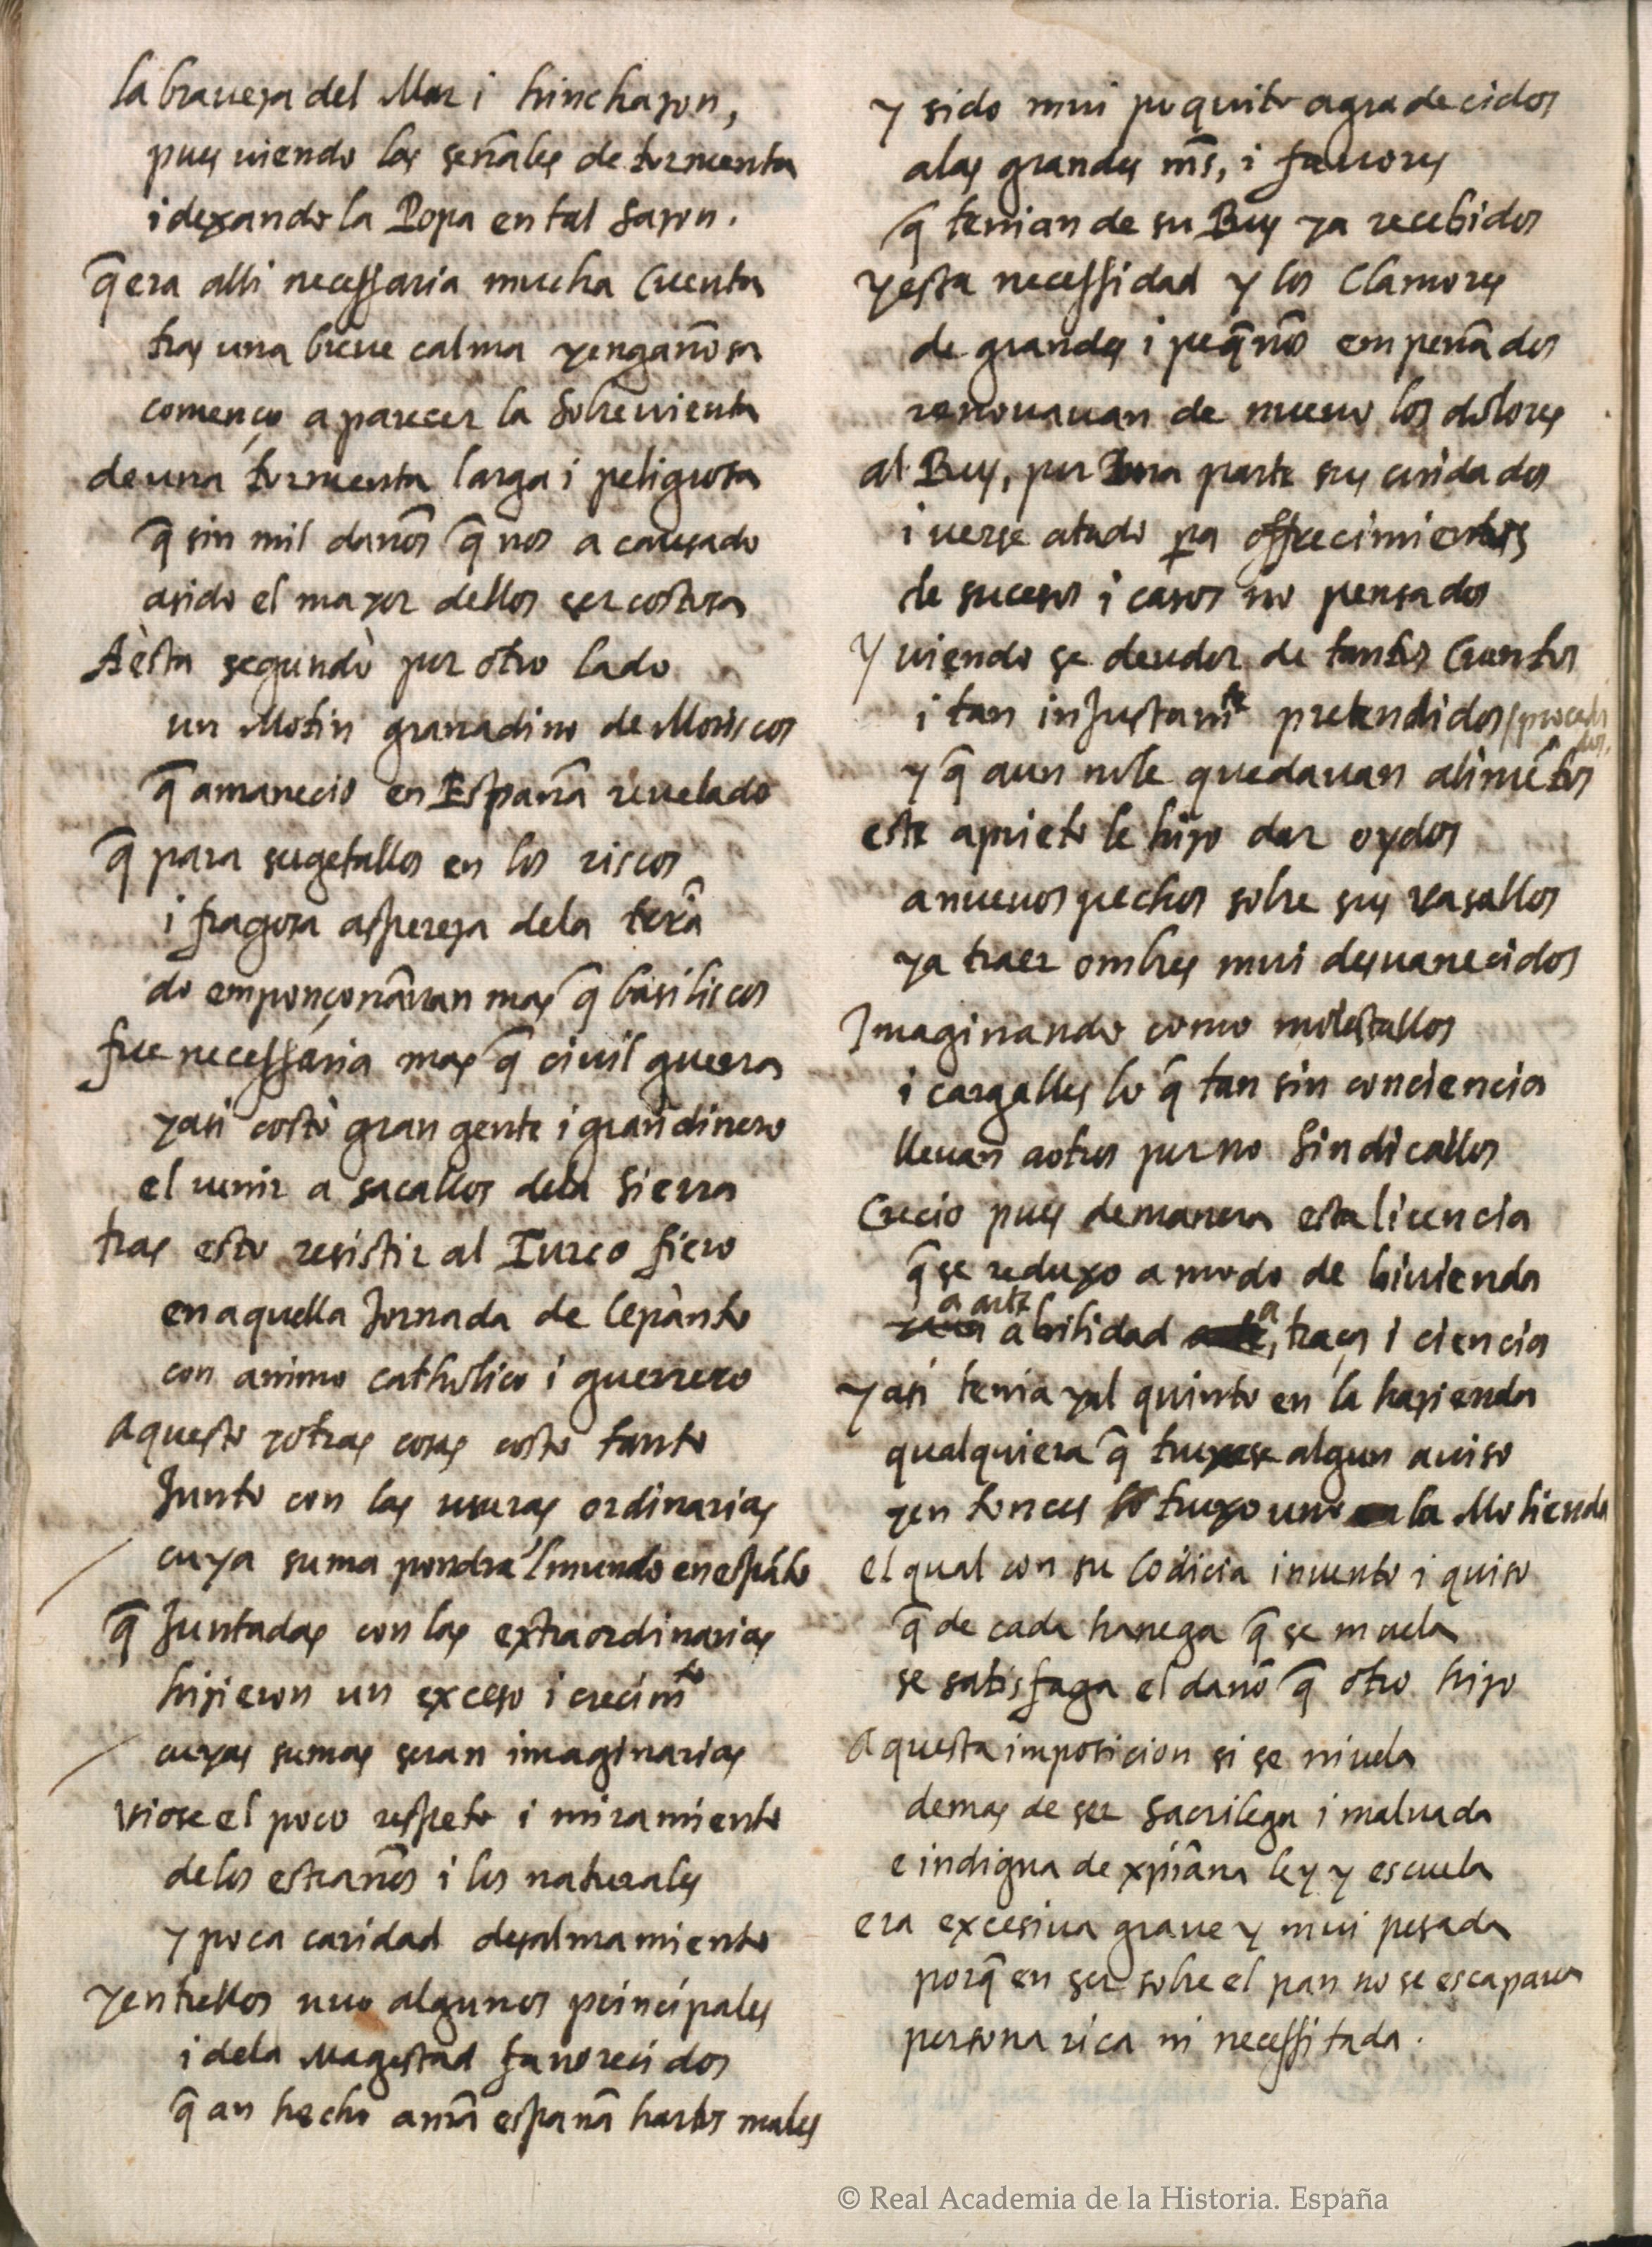 la braueza del Mar i hinchazon,
pues uiendo las señales de tormenta
i dexando la Popa en tal sazon.
q̃ era alli necessaria mucha Cuenta
tras una breue calma y engañosa
començo a parecer la sobreuienta
de una tormenta larga i peligrosa
q̃ sin mil daños q̃ nos a causado
a sido el mayor dellos ser costosa
A esta segundo por otro lado
un Motin granadino de Moriscos
q̃ amanecio en España reuelado
q̃ para sugetallos en los riscos
i fragosa aspereza dela terã
do emponçoñauan mas q̃ basiliscos
fue necessaria mas q̃ ciuil guerra
y asi costo gran gente i gran dinero
el uenir a sacallos dela Sierra
tras esto resistir al Turco fiero
en aquella Jornada de Lepanto
con animo catholico i guerrero
Aquesto y otras cosas costo tanto
Junto con las usuras ordinarias
cuya suma pondra 'l mundo en espãto
q̃ Juntadas con las extraordinarias
hizieron un exceso i crecimto
cuyas sumas seran imaginarias
Viose el poco respeto i miramiento
delos estraños i los naturales
y poca caridad desalmamiento
y entrellos uuo algunos principales
i dela Magestad fauorecidos
q̃ an hecho a nrã españa hartos males
y sido mui poquito agradecidos
alas grandes mrs̃, i fauores
q̃ tenian de su Rey ya recebidos
y esta necessidad y los Clamores
de grandes i peq̃ños empeñados
renouauan de nueuo los dolores
al Rey, por una parte sus cuidados
i uerse atado pa offrecimientos
de sucesos i casos no pensados
Y uiendo se deudor de tantos Cuentos
i tan inJustamte pretendidos
y q̃ aun no le quedauan alimẽtos
este aprieto le hizo dar oydos
a nueuos pechos sobre sus vasallos
y a traer ombres mui desuanecidos
Imaginando como molestallos
i cargalles lo q̃ tan sin conciencia
lleuan a otros por no sindicallos
Crecio pues de manera esta licencia
q̃ se reduxo a modo de biuienda
a arte abilidad a, traça i ciencia
y asi tenia ya l quinto en la hazienda
qualquiera q̃ truxese algun auiso
y entonces lo truxo uno la Molienda
el qual con su Codicia inuento i quiso
q̃ de cada hanega q̃ se muela
se satisfaga el daño q̃ otro hizo
Aquesta imposicion si se niuela
demas de ser sacrilega i maluada
e indigna de xp̃iana ley y escuela
era excesiua graue y mui pesada
porq̃ en ser sobre el pan no se escapaua
persona rica ni necessitada.
© Real Academia de la Historia. España